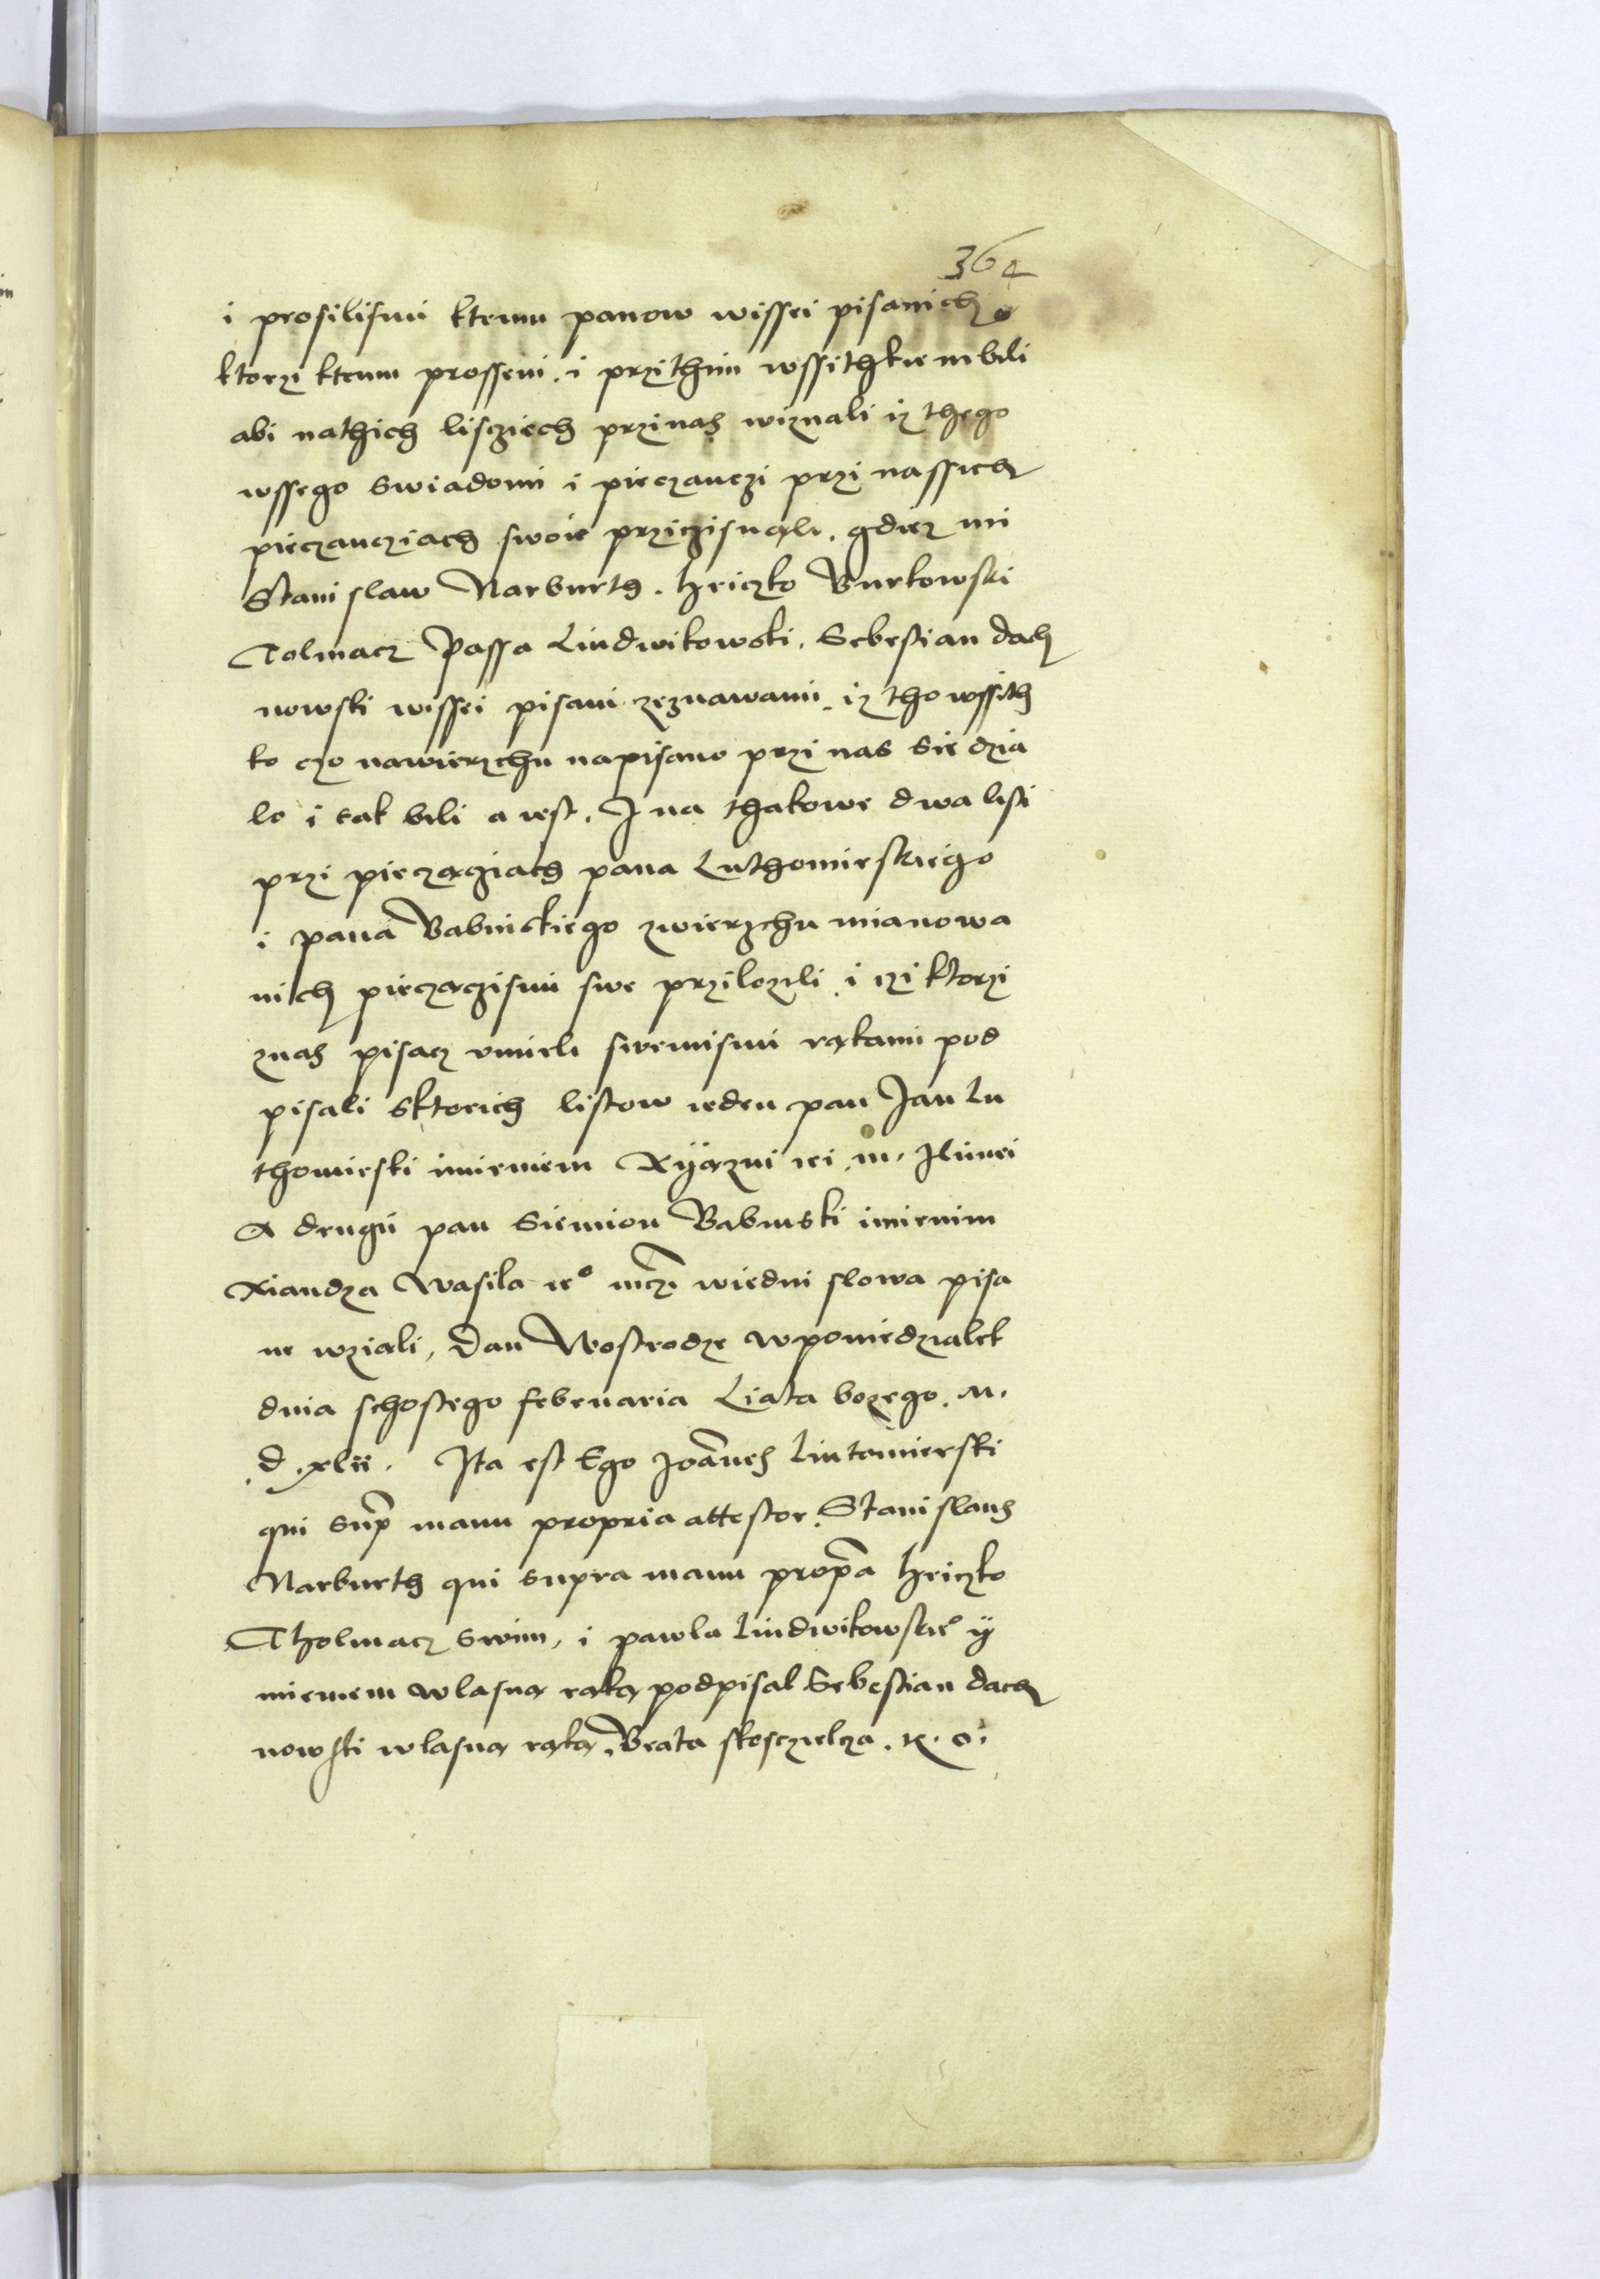 364
i prosilismi ktemu panow wissei pisanich
ktorzi ktemu prosseni . i przithim wssithkiem bili
abi nathich lisgziech przinas wiznali iz thego
wssego swiadomi i pieczanczi przi nassich
pieczancziach swoie przicziſnąli . gdiez mi
Stanislaw Narburth . hriczko Burkowski
Tolmacz Passa Lindwikowski . Sebestian dach
nowski wissei pisani zeznawami . iz tho wssith
ko czo nawierzchu napisano przi nas sie dzia
lo i tak bili a iest . I na thakowe dwa listi
przi pieczącziach pana Luthomirskiego
i pana Babinskiego zwierzchu mianowa
nich pieczączismi swe przilozili . i czi ktorzi
znas pisacz umieli swemismi rąkami pod
pisali sktorich listow ieden pan Jan Lu
thomirski imieniem Xyązni iei . m . Ilinei
A drugii pan Siemion Babinski imienim
Xiandza Wasila ieº mczi wiedni slowa pisa
ne wziąli , Dan Wostrodze wponiedzialek
dnia schostego februaria Liata bozego . M .
. d . xlii . Ita est Ego Joannes Lutomierski
qui sup manu propria attestor . Stanislaus
Narburth qui supra manu propa hriczko
Tholmacz swim , i pawla Lindwikowskieº ÿ
mieniem wlasną rąką podpisal Sebestian dach
nowski wlasną rąką . Beata skosczielcza . K . O .